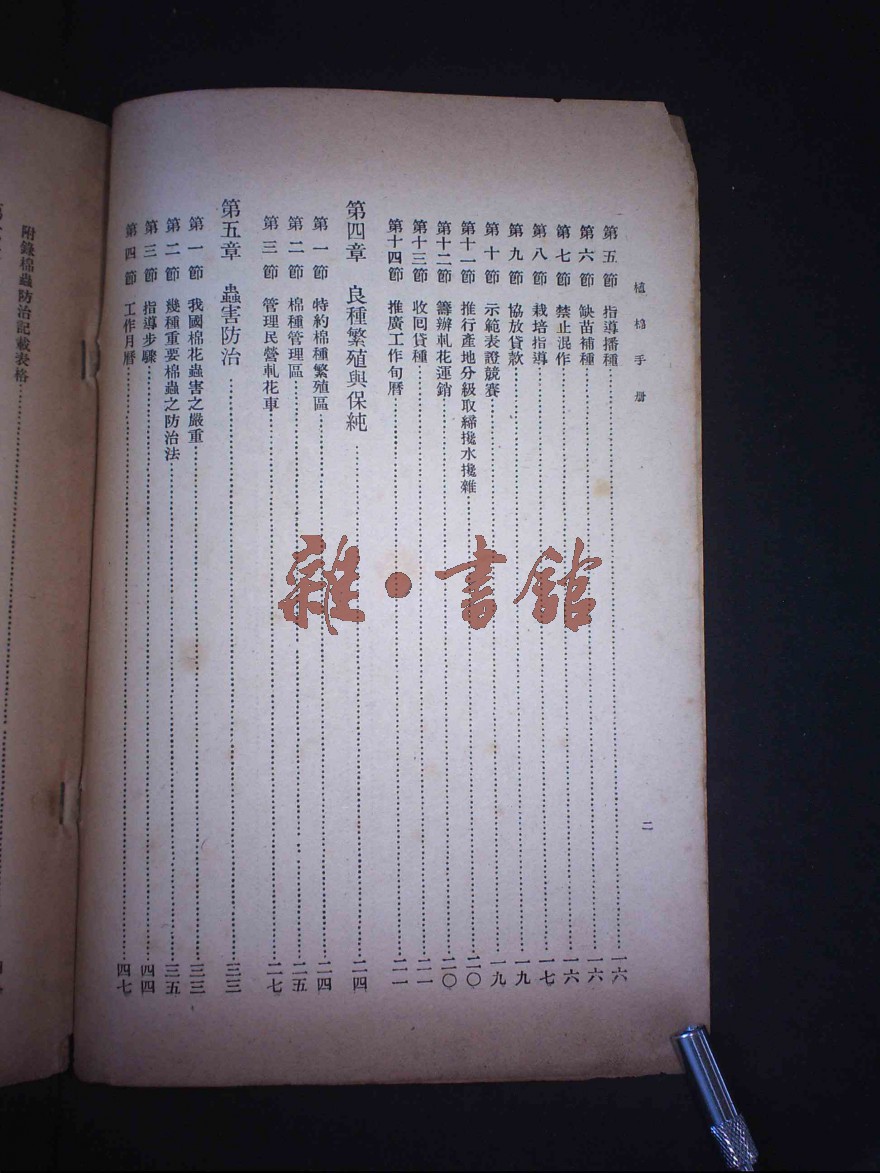 植棉手册
二
第五節 指導播種……一六
第六節 缺苗補種……一六
第七節 禁止混作……一六
第八節 栽培指導……一七
第九節 協放貸款……一九
第十節 示範表證競賽……一九
第十一節 推行產地分級取締攙水攙雜……二〇
第十二節 籌辦軋花運銷……二〇
第十三節 收回貸種……二一
第十四節 推廣工作旬曆……二一
第四章 良種繁殖與保純……二四
第一節 特約棉種繁殖區……二四
第二節 棉種管理區……二五
第三節 管理民營軋花車……二七
第五章 蟲害防治……三三
第一節 我國棉花蟲害之嚴重……三三
第二節 幾種重要棉蟲之防治法……三五
第三節 指導步驟……四四
第四節 工作月曆……四七
附錄棉蟲防治記載表格……
雜·書館